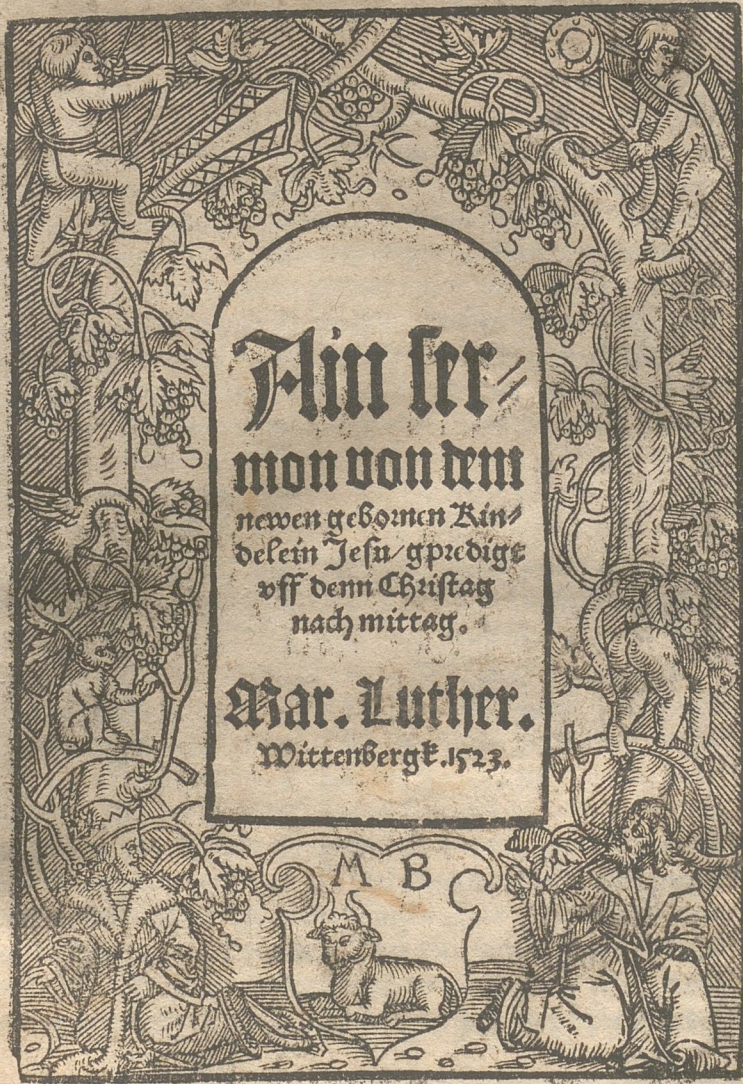 Ain ser⸗
mon von dem
newen gebornen Kin⸗
delein Jesu/ gpredigt
vff denn Christag
nach mittag.
Mar. Luther.
Wittenbergk.1523.
M B